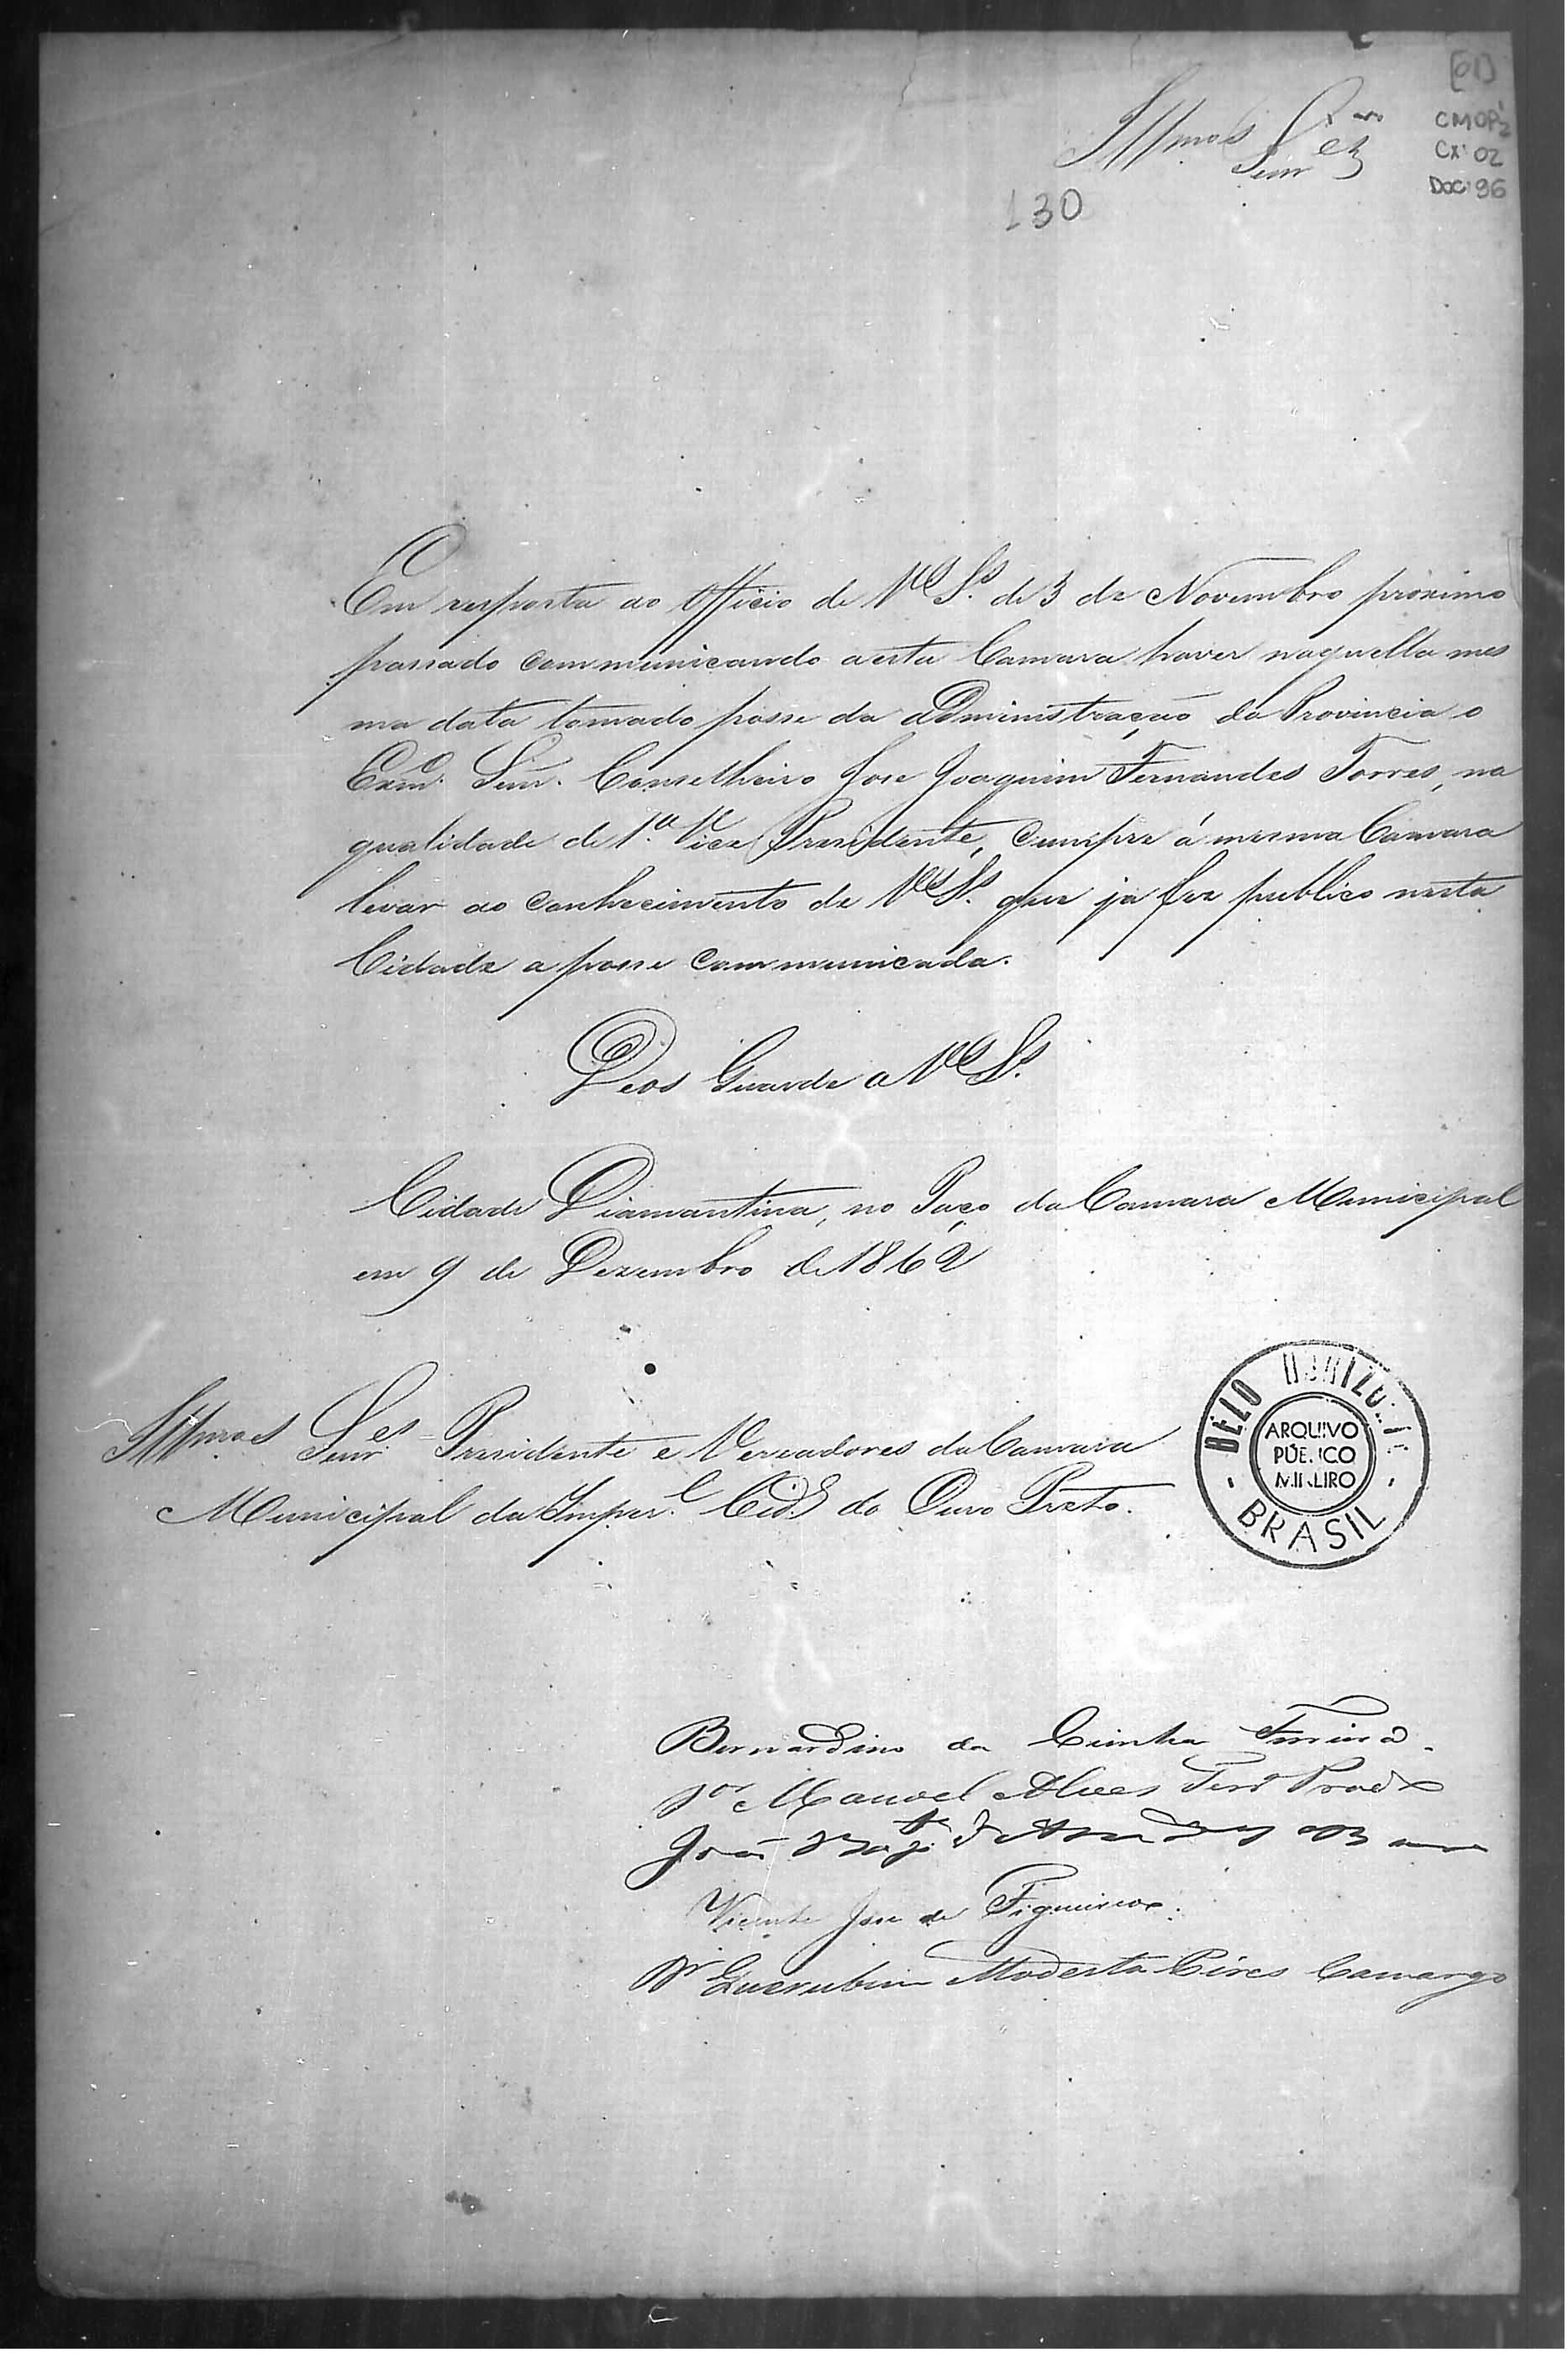 [61]
CMOP 2
CX: 02
DOC: 96
Illmos Senres
130
Em resposta ao Officio de VSSas. de 3 de Novembro proximo
passado communicando a esta Camara haver naquella mes
ma data tomado posse da Administração da Provincia o
Exmo. Senr. Conselheiro Jose Joaquim Fernandes Torres, na
qualidade de 1º. Vice Presidente, cumpre á mesma Camara
levar ao conhecimento de VSSas. que ja fez publico nesta
Cidade a posse communicada.
Deos Guarde a VSSas.
Cidade Diamantina, no Paço da Camara Municipal
em 9 de Dezembro de 1862
Illmos Senres. Presidente e Vereadores da Camara
Municipal da Imper.l Cid.e do Ouro Preto.
BELO HORIZONTE
ARQUIVO
PÚBLICO
MINEIRO
BRASIL
Bernardino da Cunha Ferreira
Manoel Alves
João
Vicente Jose de Figueiredo.
Dr Querubim Modesto Pires Camargo